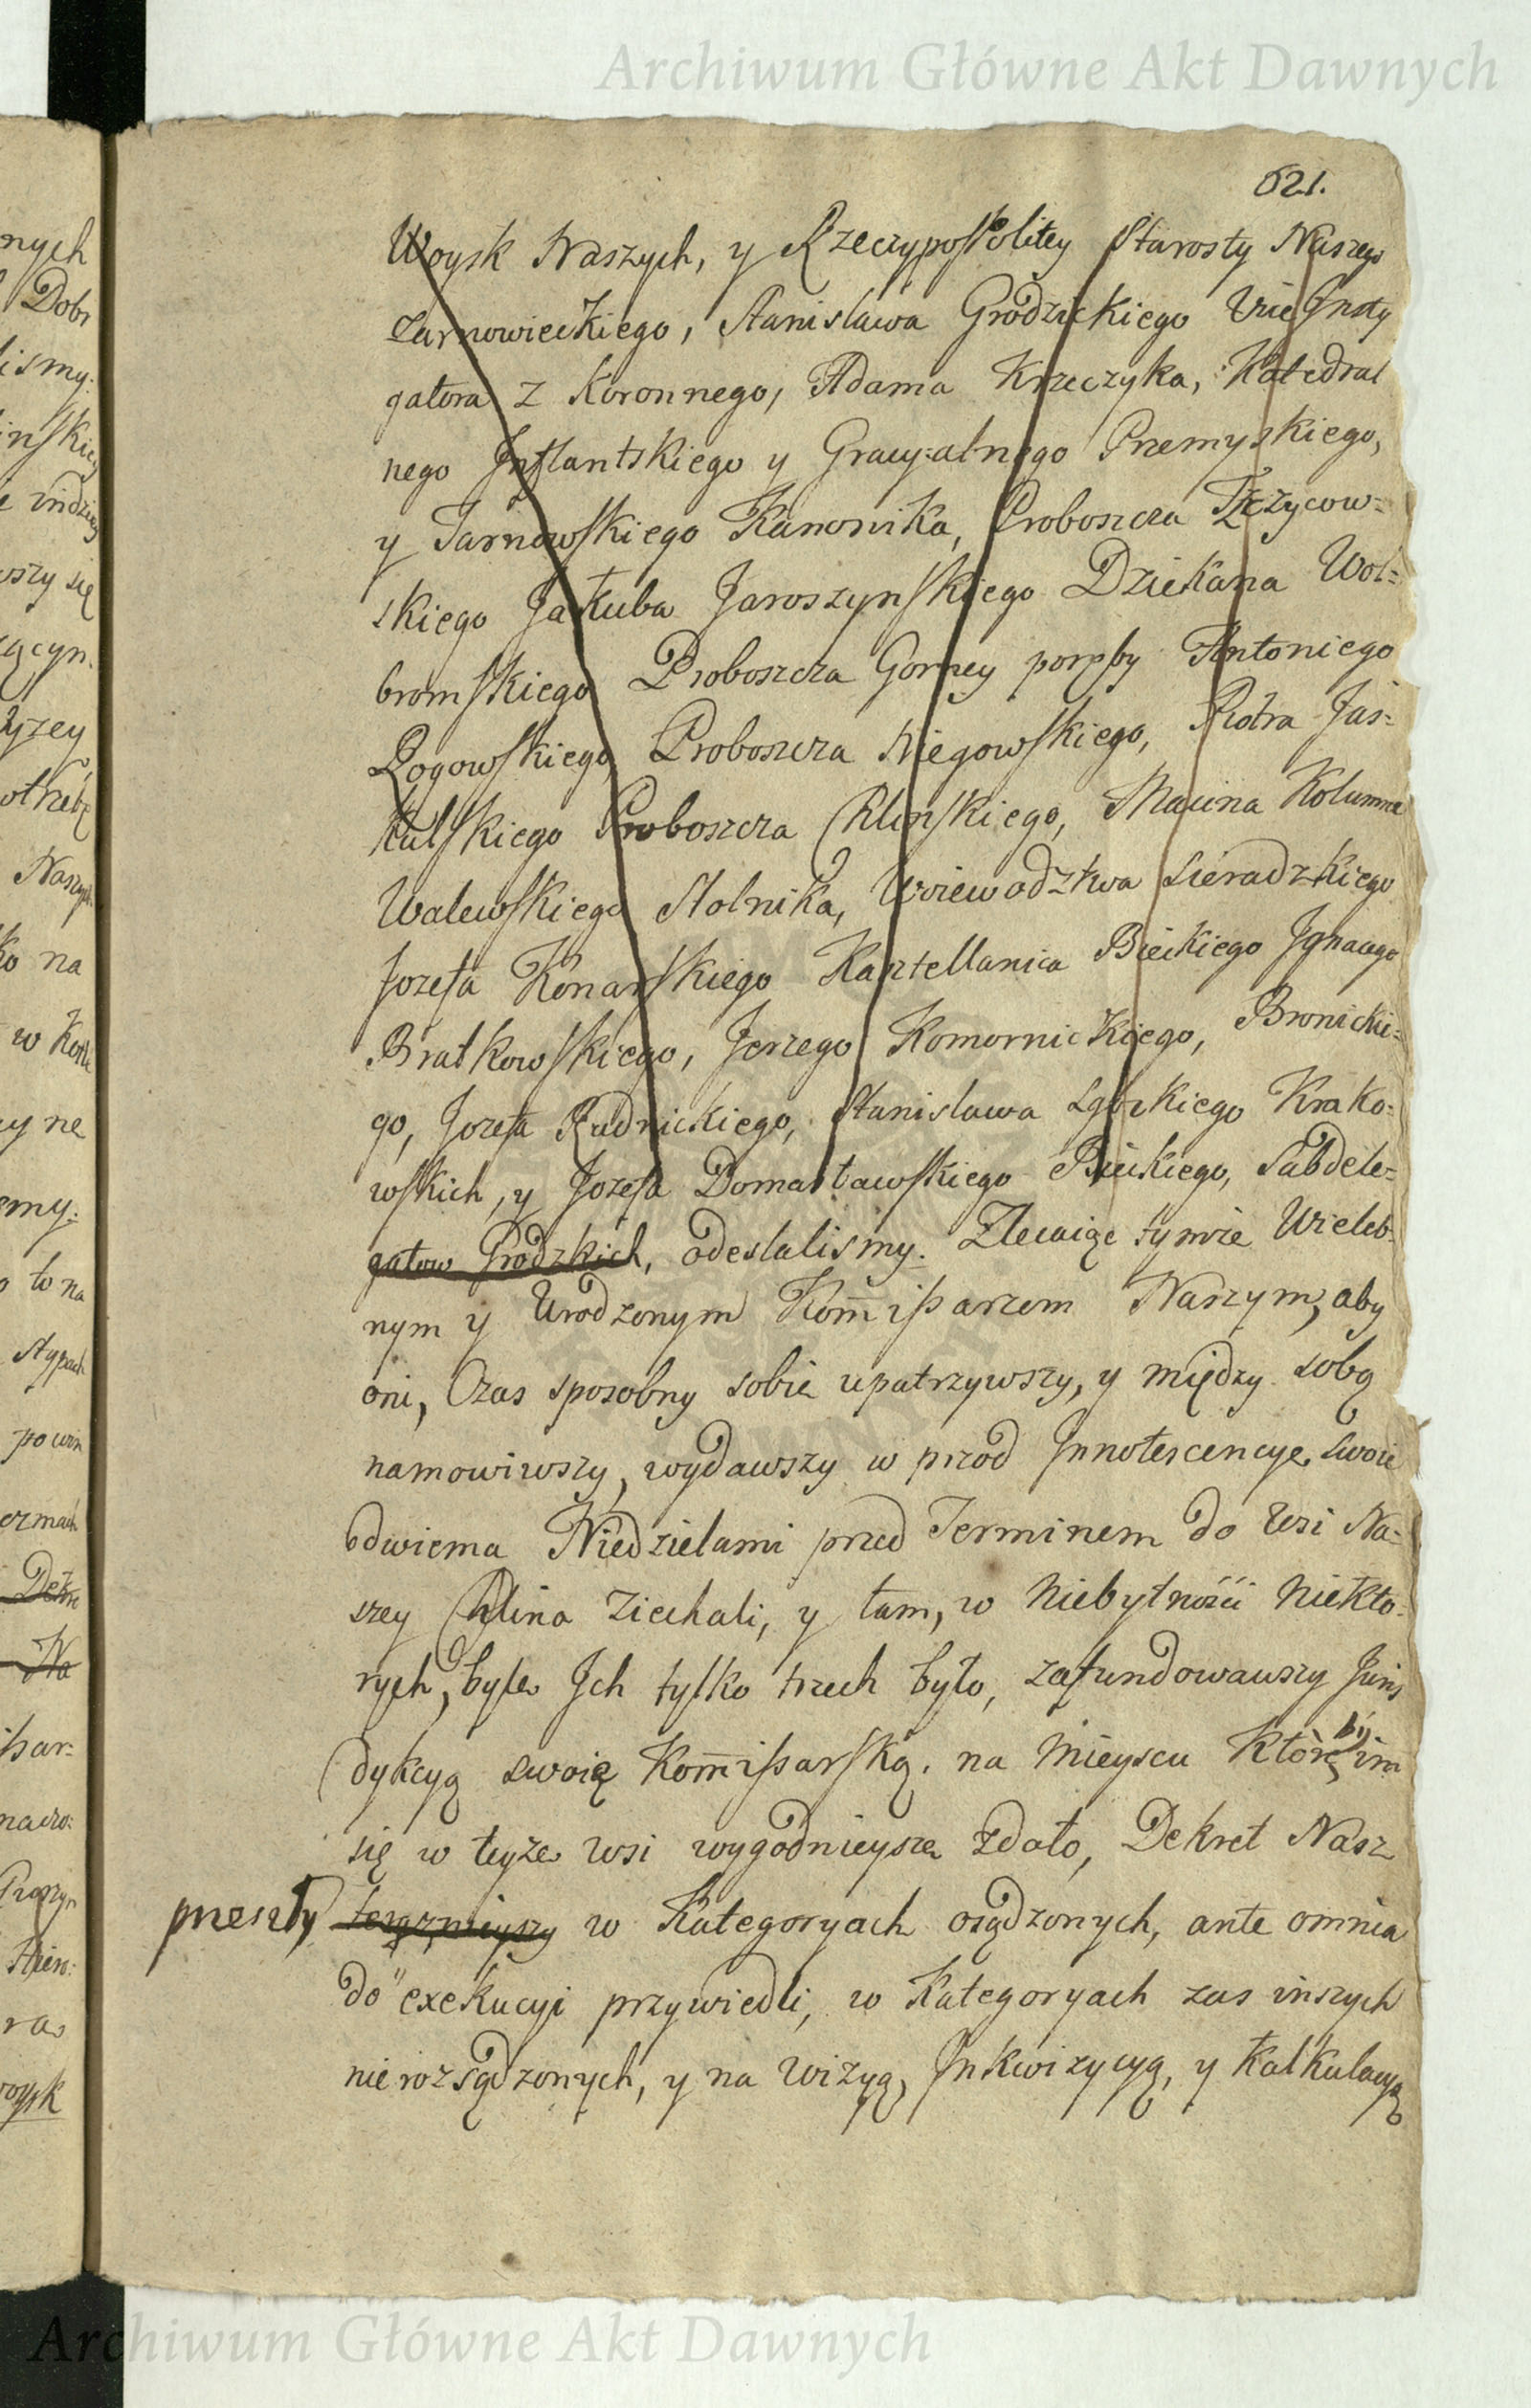 Archiwum Główne Akt Dawnych
621.
Woysk Naszych, y Rzeczypospolitey Starosty Naszego
Zarnowieckiego, Stanisława Grodzickiego
gatora z Koronnego, Adama Krzeczyka, Katedral
nego Inflantskiego y Gracyalnego Przemyskiego,
y Tarnowskiego Kanonika, Proboszcza
skiego Jakuba Jaroszynskiego Dziekana Wol=
bromskiego Proboszcza Gorney poręby Antoniego
Łogowskiego Proboszcza Niegowskiego, Piotra Jas=
kulskiego Proboszcza Chlinskiego, Macina Kolumna
Walewskiego Stolnika, Woiewodztwa Sieradzkiego
Jozefa Konarskiego Kasztellanica Bieckiego Ignacego
Bratkowskiego, Jerzego Komornickiego, Bronickie=
go, Jozefa Rudnickiego, Stanisława Zgorkiego Krako=
wskich, y Jozefa Domasławskiego Bieckiego, Subdele=
gatow Grodzkich, odeslalismy. Zlecaiąc tymże Wieleb=
nym y Urodzonym Kom̄issarzom Naszym, aby
oni, Czas sposobny sobie upatrzywszy, y między sobą
namowiwszy, wydawszy w przod Innotescencye swoie
dwiema Niedzielami przed Terminem do Wsi Na=
szey Chlina Ziechali, y tam, w Niebytnosci Niekto=
rych, byle Ich tylko trzech było, zafundowawszy Juris
dykcyą swoią Kom̄issarską, na Mieyscu Któreby im
się w teyże wsi wygodnieysze zdało, Dekret Nasz
przeszły teraznieyszy w Kategoryach osądzonych, ante omnia
do exekucyi przywiedli, w Kategoryach zas inszych
nierozsądzonych, y na Wizyą, Inkwizycyą, y Kalkulacyą
Archiwum Główne Akt Dawnych